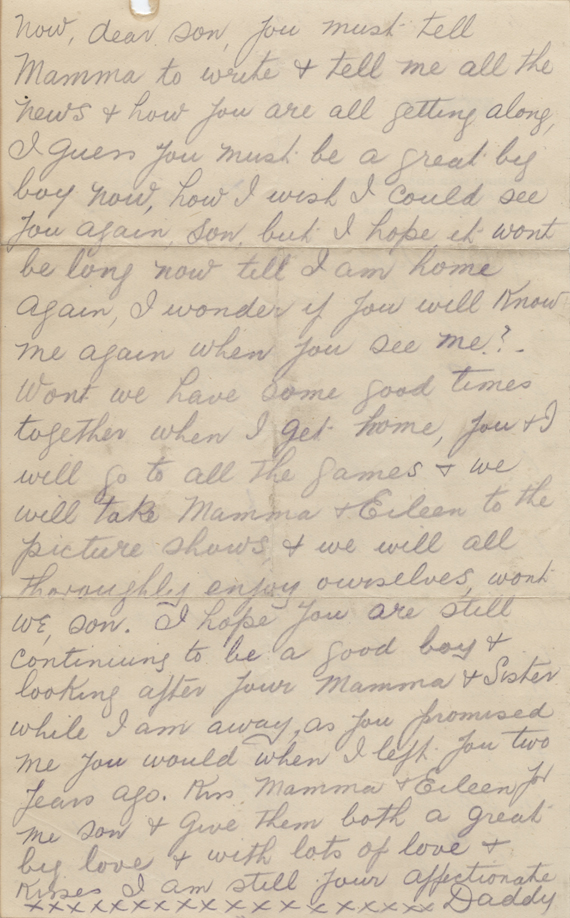 Now, dear son, you must tell
Mamma to write & tell me all the
news & how you are all getting along,
I guess you must be a great big
boy now, how I wish I could see
you again, son, but I hope it wont
be long now till I am home
again, I wonder if you will know
me again when you see me?-
Wont we have some good times
together when I get home, you & I
will go to all the games & we
will take Mamma & Eileen to the
picture shows & we will all
thoroughly enjoy ourselves, wont
we, son. I hope you are still
continuing to be a good boy &
looking after your Mamma & Sister
while I am away, as you promised
me you would when I left you two
years ago. Kiss Mamma & Eileen for
me son & give them both a great
big love & with lots of love &
Kisses I am still your affectionate
xxxxxxxxxxxxxxxxxxx Daddy